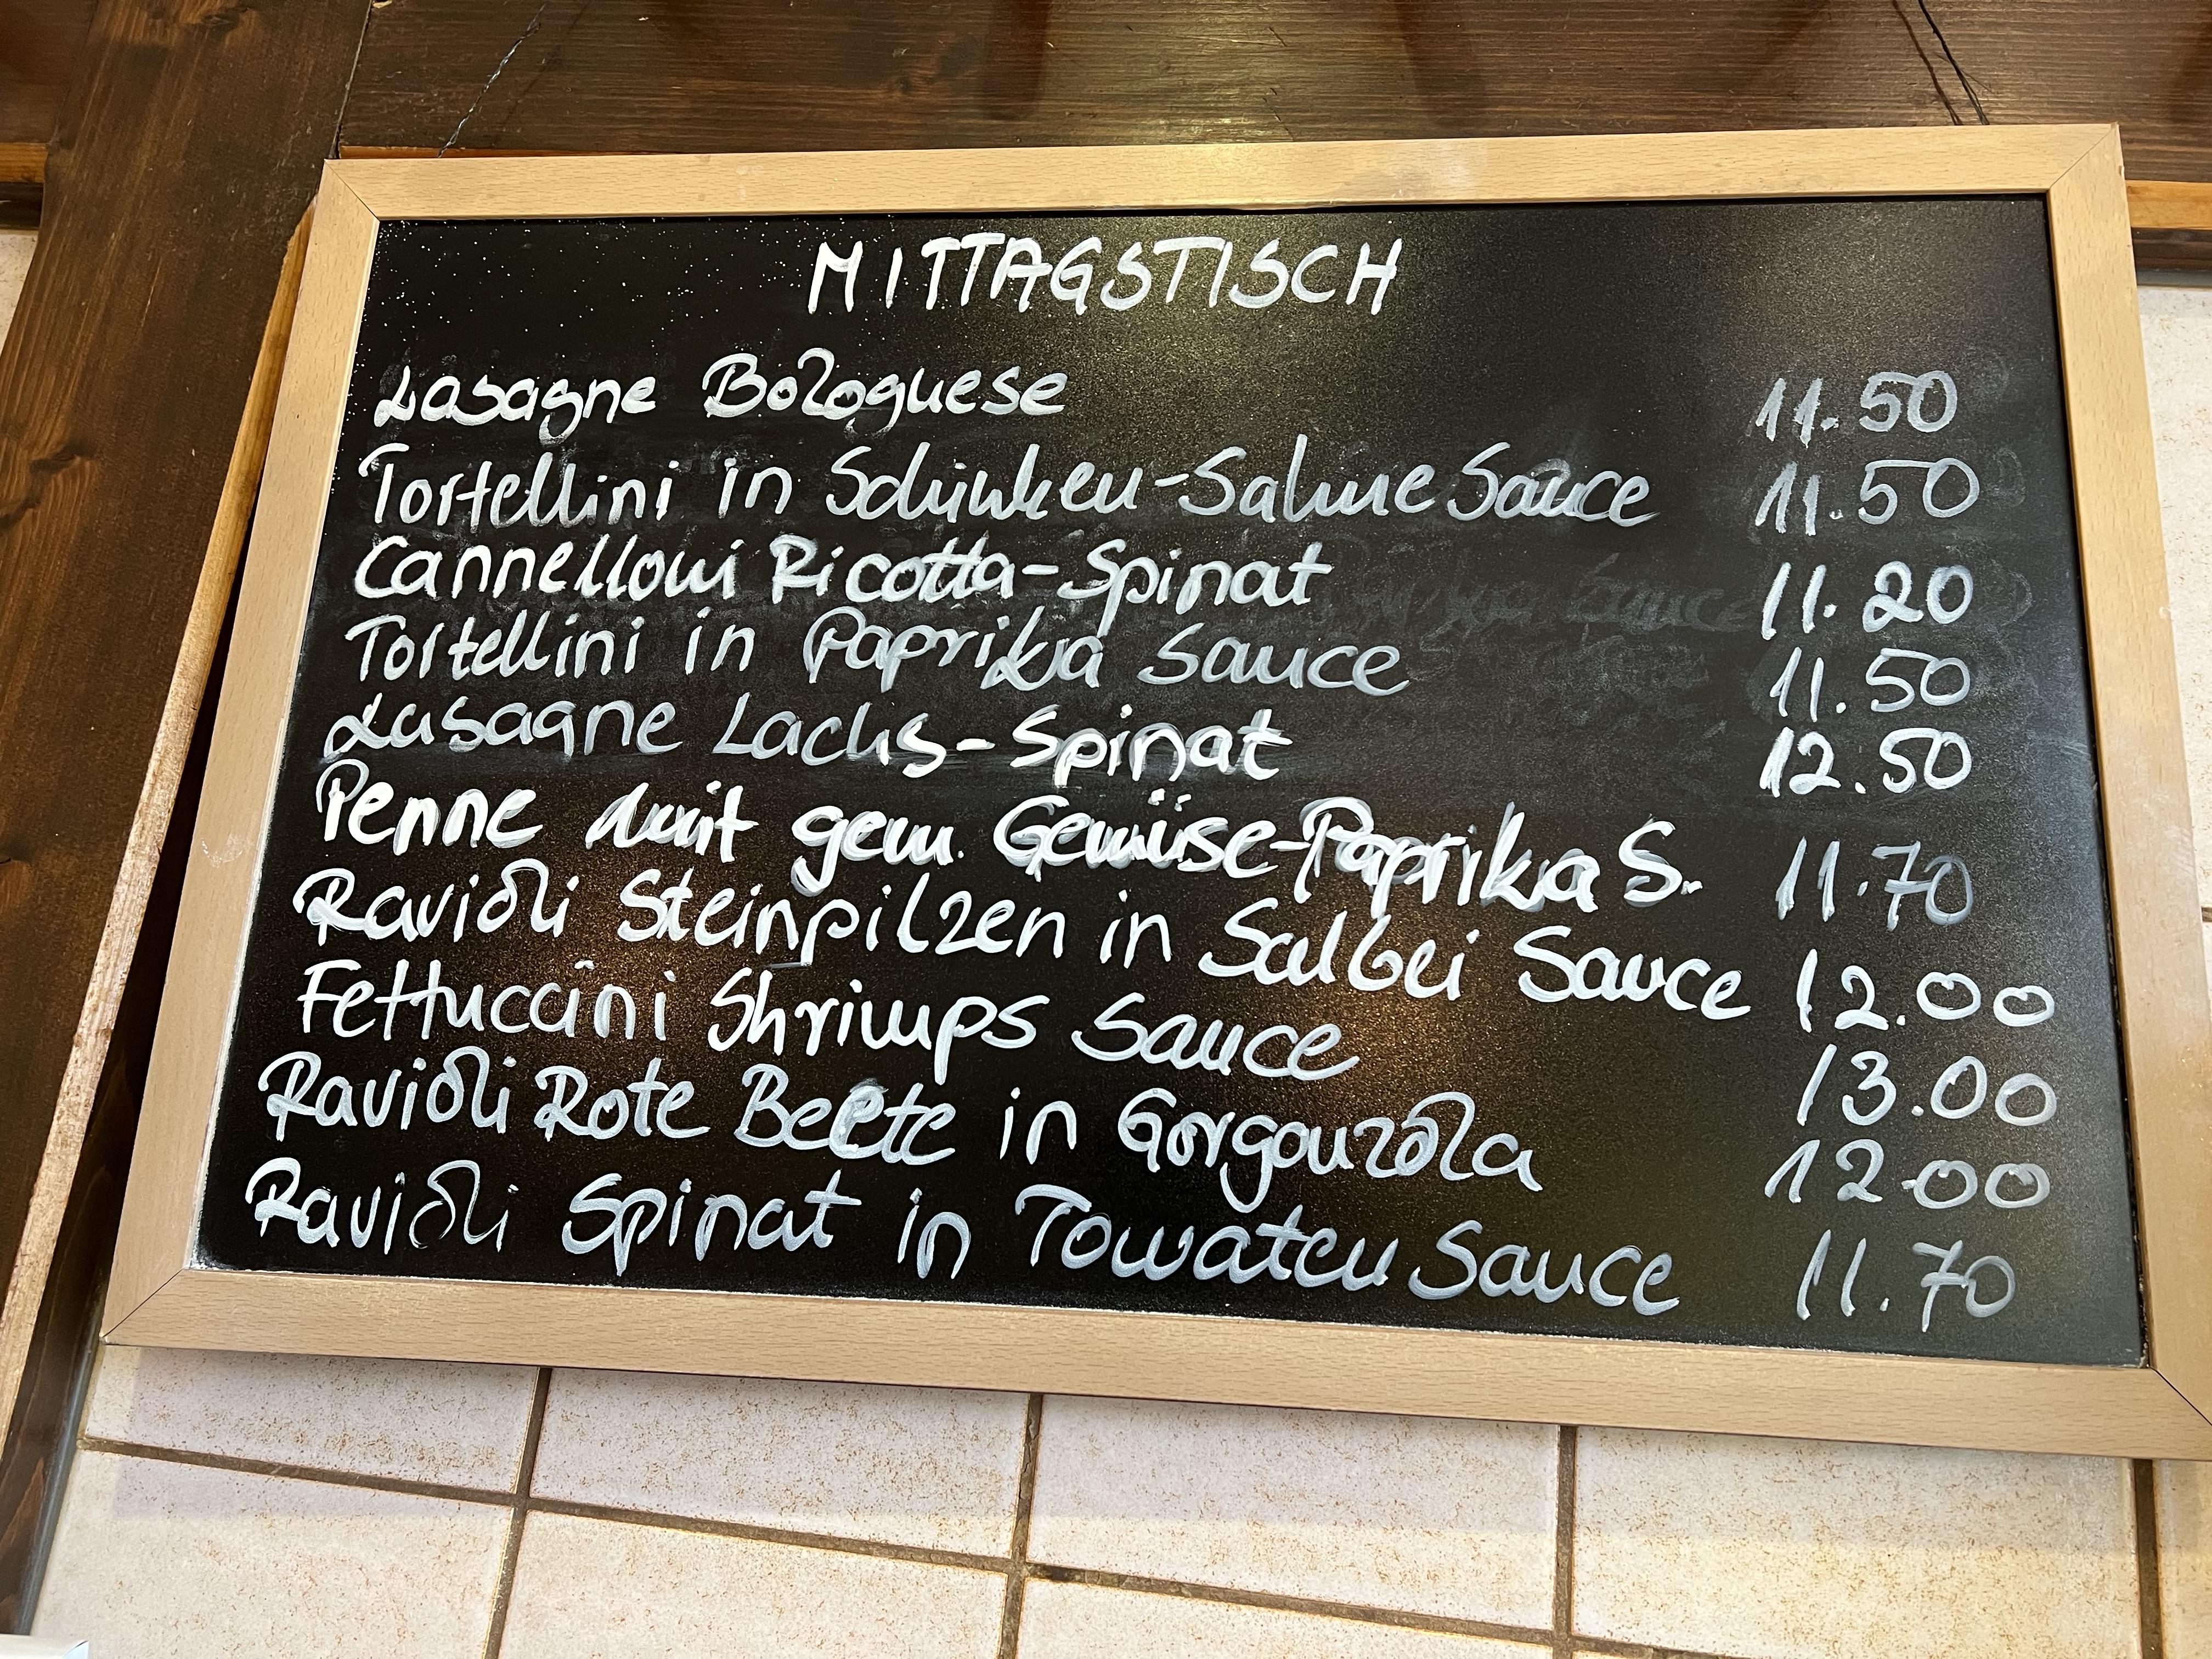 MITTAGSTISCH
Lasagne Bolognese 11.50
Tortellini in Schinken-Sahne Sauce 11.50
Cannelloni Ricotta-Spinat 11.20
Tortellini in Paprika Sauce 11.50
Lasagne Lachs-Spinat 12.50
Penne mit gem. Gemüse-Paprika S. 11.70
Ravioli Steinpilzen in Salbei Sauce 12.00
Fettuccini Shrimps Sauce 13.00
Ravioli Rote Beete in Gorgonzola 12.00
Ravioli Spinat in Tomaten Sauce 11.70